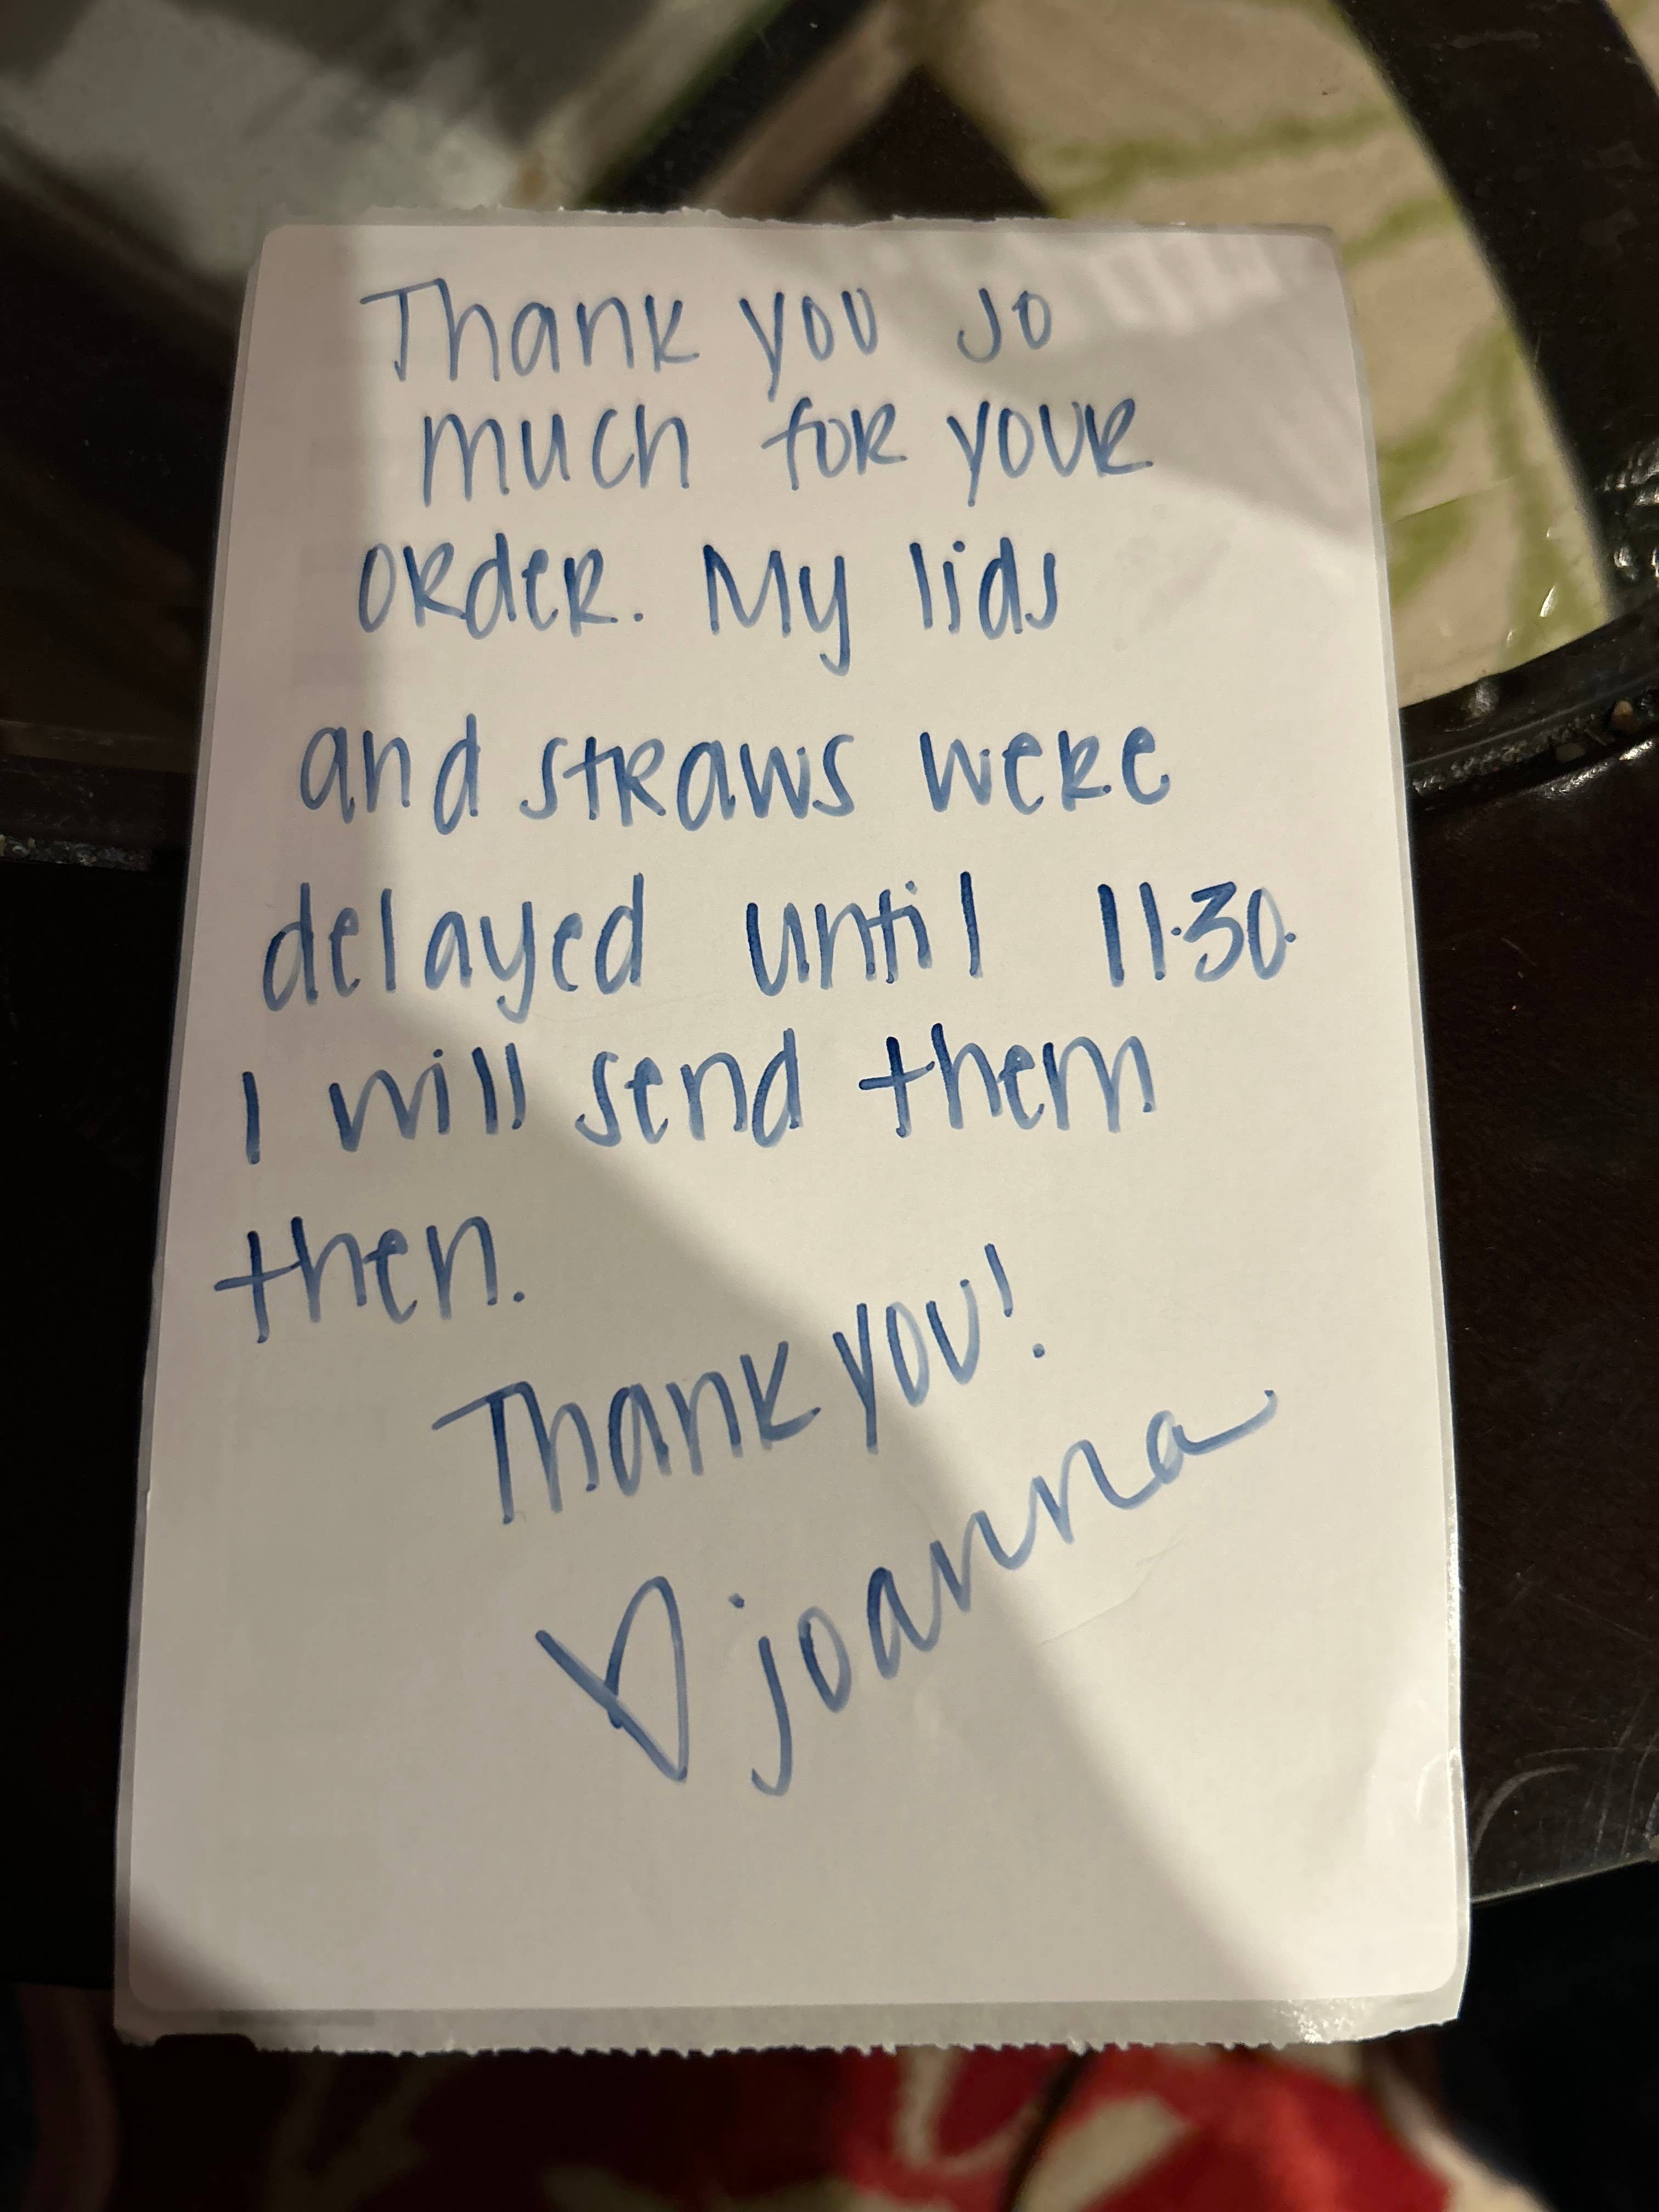 Thank you so
much for your
order. My lids
and straws were
delayed until 11.30.
I will send them
then.
Thank you!
♡ joanna